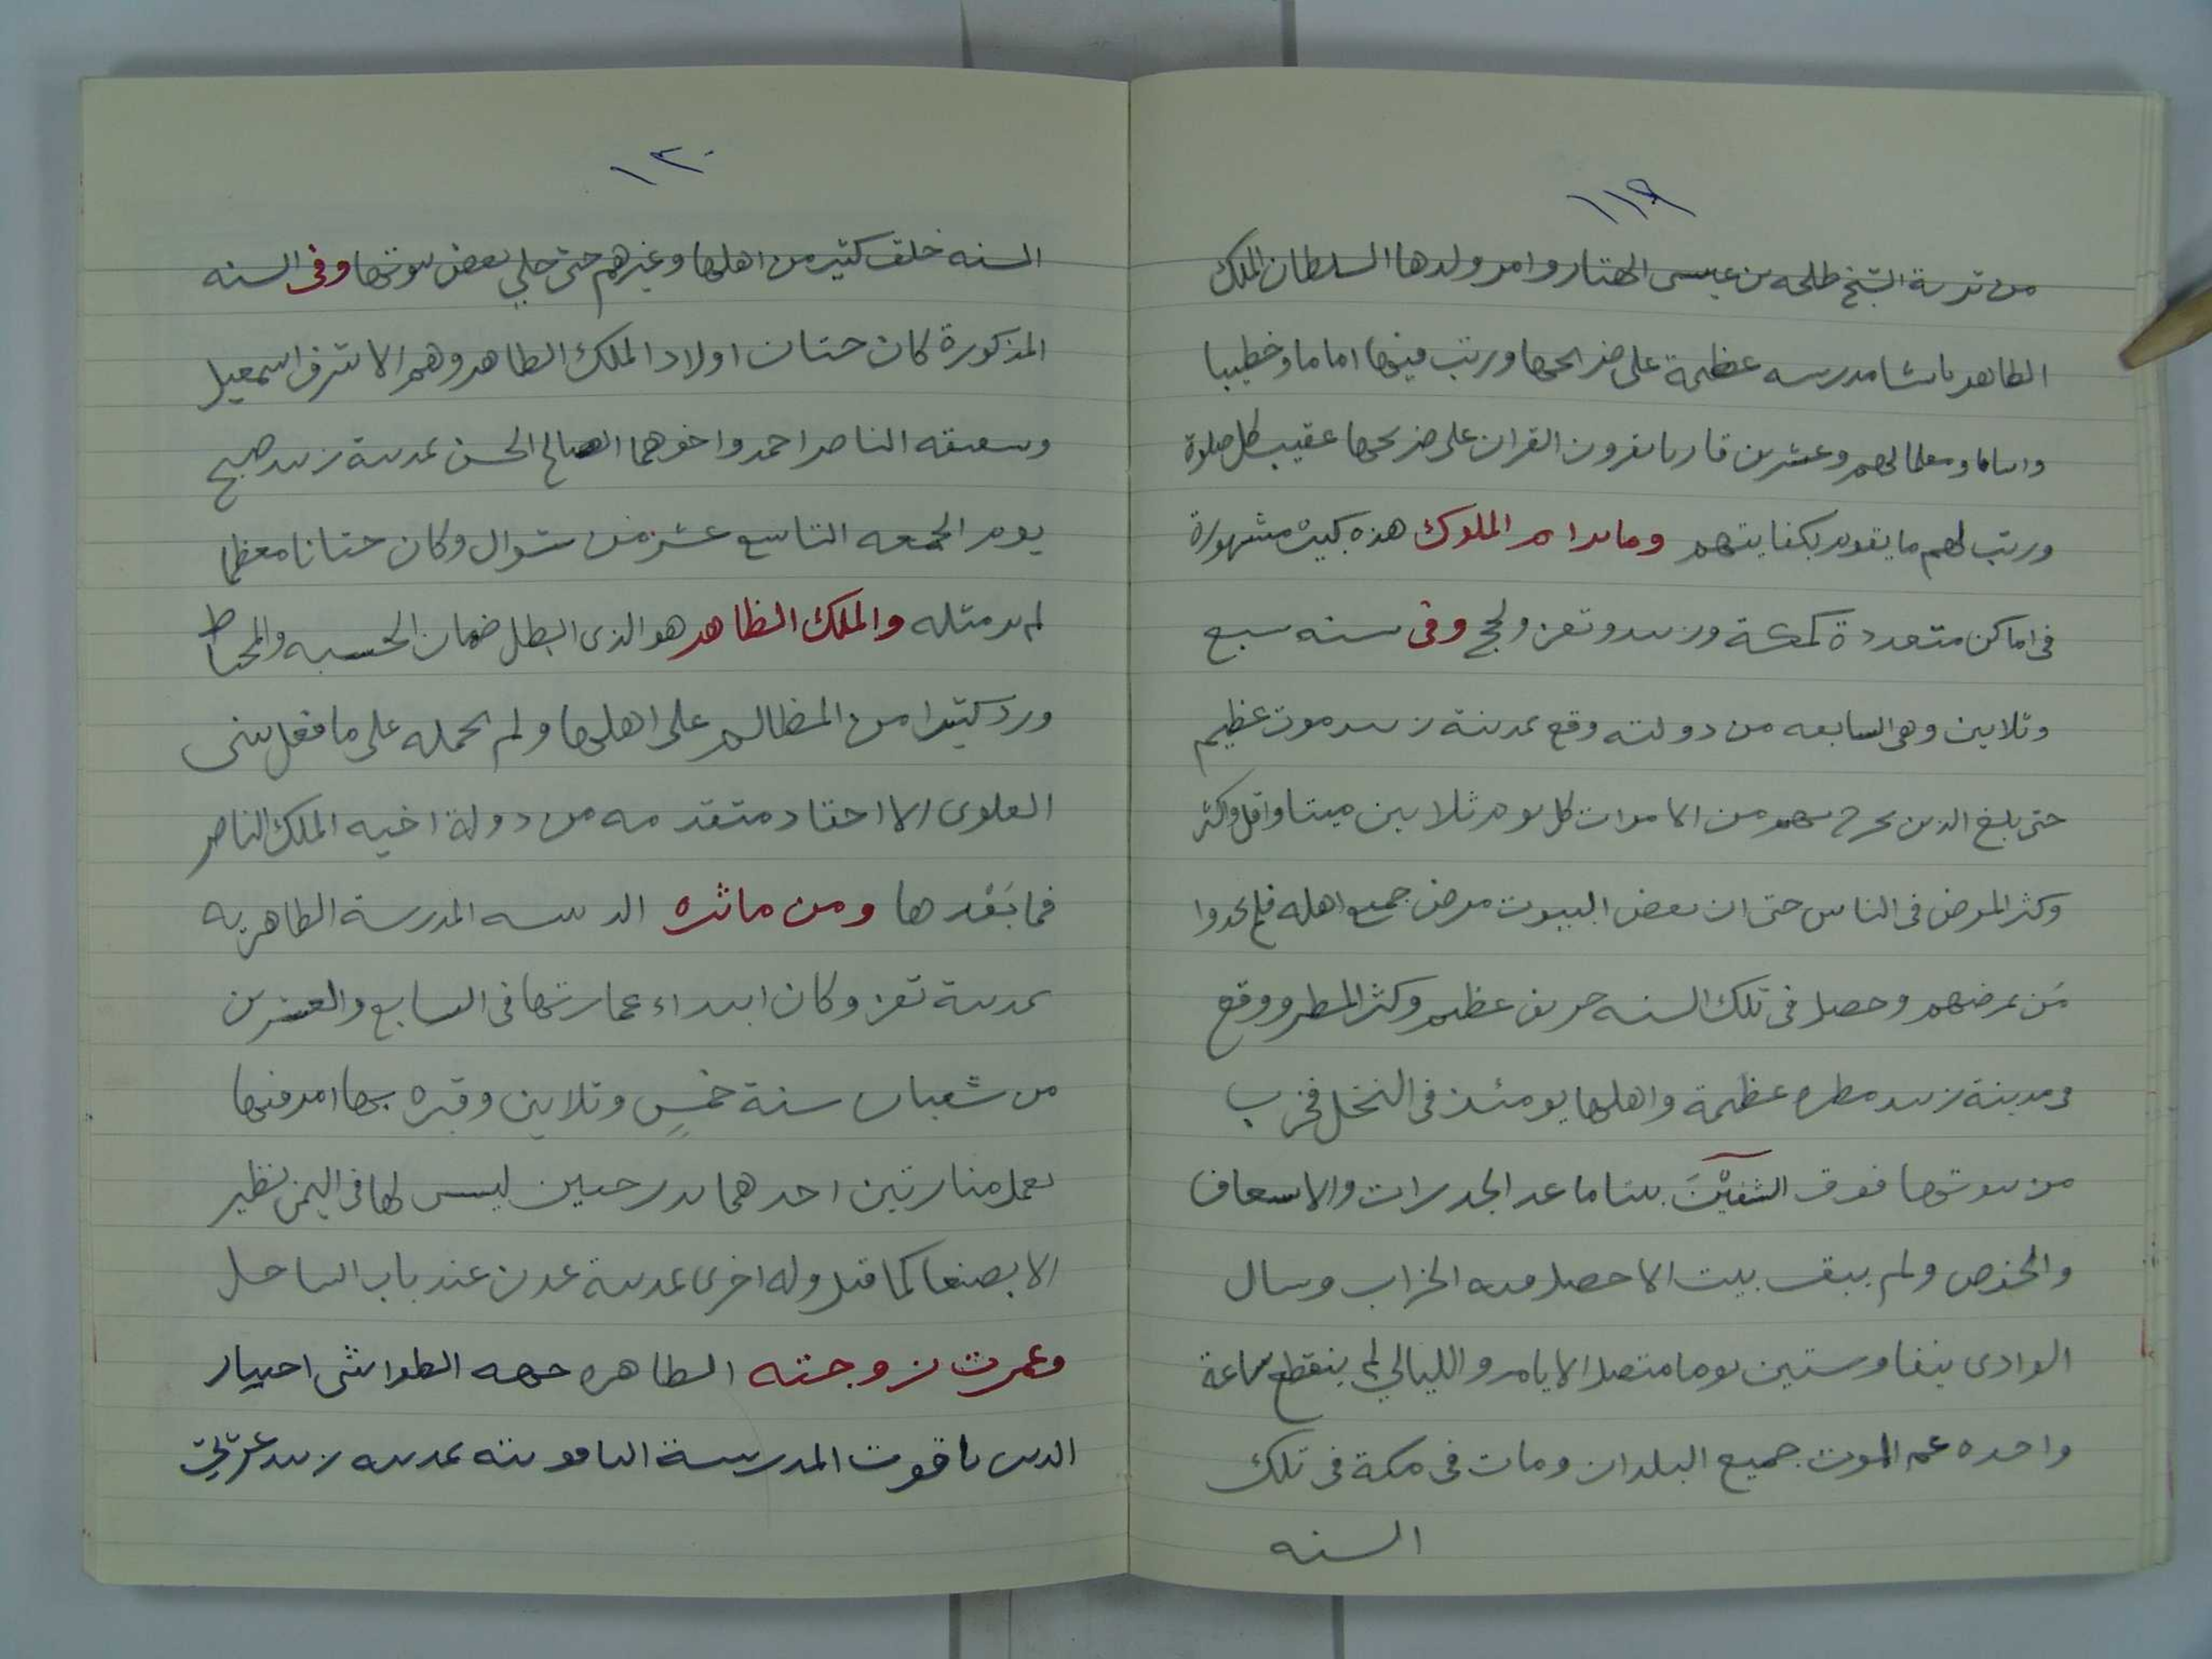 ١١٩
من تربة الشيخ طلحه بن عيسى الهتار وامر ولدها السلطان الملك
الطاهر بانشا مدرسه عظيمة على ضرايحها ورتب فيها اماما وخطيبا
وايتاما ومعلما لهم وعشرين قاريا يقرون القران على ضريحها عقيب كل صلوة
ورتب لهم ما يقوم بكفايتهم وماىرام الملوك هذه كيت مشهورة
فى اماكن متعددة كمكة وزبيد وتعز ولحج وفى سنه سبع
وثلاثين وهى السابعه من دولته وقع بمدينة زبيد موت عظيم
حتى بلغ الذين يخرج بهم من الاموات كل يوم ثلاثين ميتا واقل واكثر
وكثر المرض فى الناس حتى ان بعض البيوت مرض جميع اهله فلم يجدوا
من يمرضهم وحصل فى تلك السنه خريف عظيم وكثر المطر ووقع
فى مدينة زبيد مطره عظيمة واهلها يومئذ فى النخل فخرب
من بيوتها فوق بيتا ما عدا الجدرات والاسعاف
والخوص ولم يبق بيت الا حصل فيه الخراب وسال
الوادى نيفا وستين يوما متصل الايام والليالي لم ينقطع ساعة
واحده عم الموت جميع البلدان ومات فى مكة فى تلك
السنه
١٢٠
السنه خلق كثير من اهلها وغيرهم حتى خلي بعض بيوتها وفى السنه
المذكورة كان ختان اولاد الملك الطاهر وهم الاشرف اسمعيل
وشقيقه الناصر احمد واخوهما الصالح الحسن بمدينة زبيد صبح
يوم الجمعه التاسع عشر من شوال وكان ختانا معظما
لم ير مثله والملك الظاهر هو الذى ابطل ضمان الحسبه والمحناط
ورد كثيرا من المظالم على اهلها ولم يحمله على ما فعل ببنى
العلوى الا احقاد متقدمه من دولة اخيه الملك الناصر
فما بَعْدها ومن ماثره الدينيه المدرسة الطاهريه
بمدينة تعز وكان ابتداء عمارتها فى السابع والعشرين
من شعبان سنة خمسٍ وثلاثين وقبره بها امر فيها
بعمل منارتين احدهما بدرجتين ليس لها فى اليمن نظير
الا بصنعا كما قيل وله اخرى بمدينة عدن عند باب الساحل
وعمرت زوجته الطاهره جهه الطواشى اختيار
الدين ياقوت المدرسة الياقوتيه بمدينه زبيد غربي